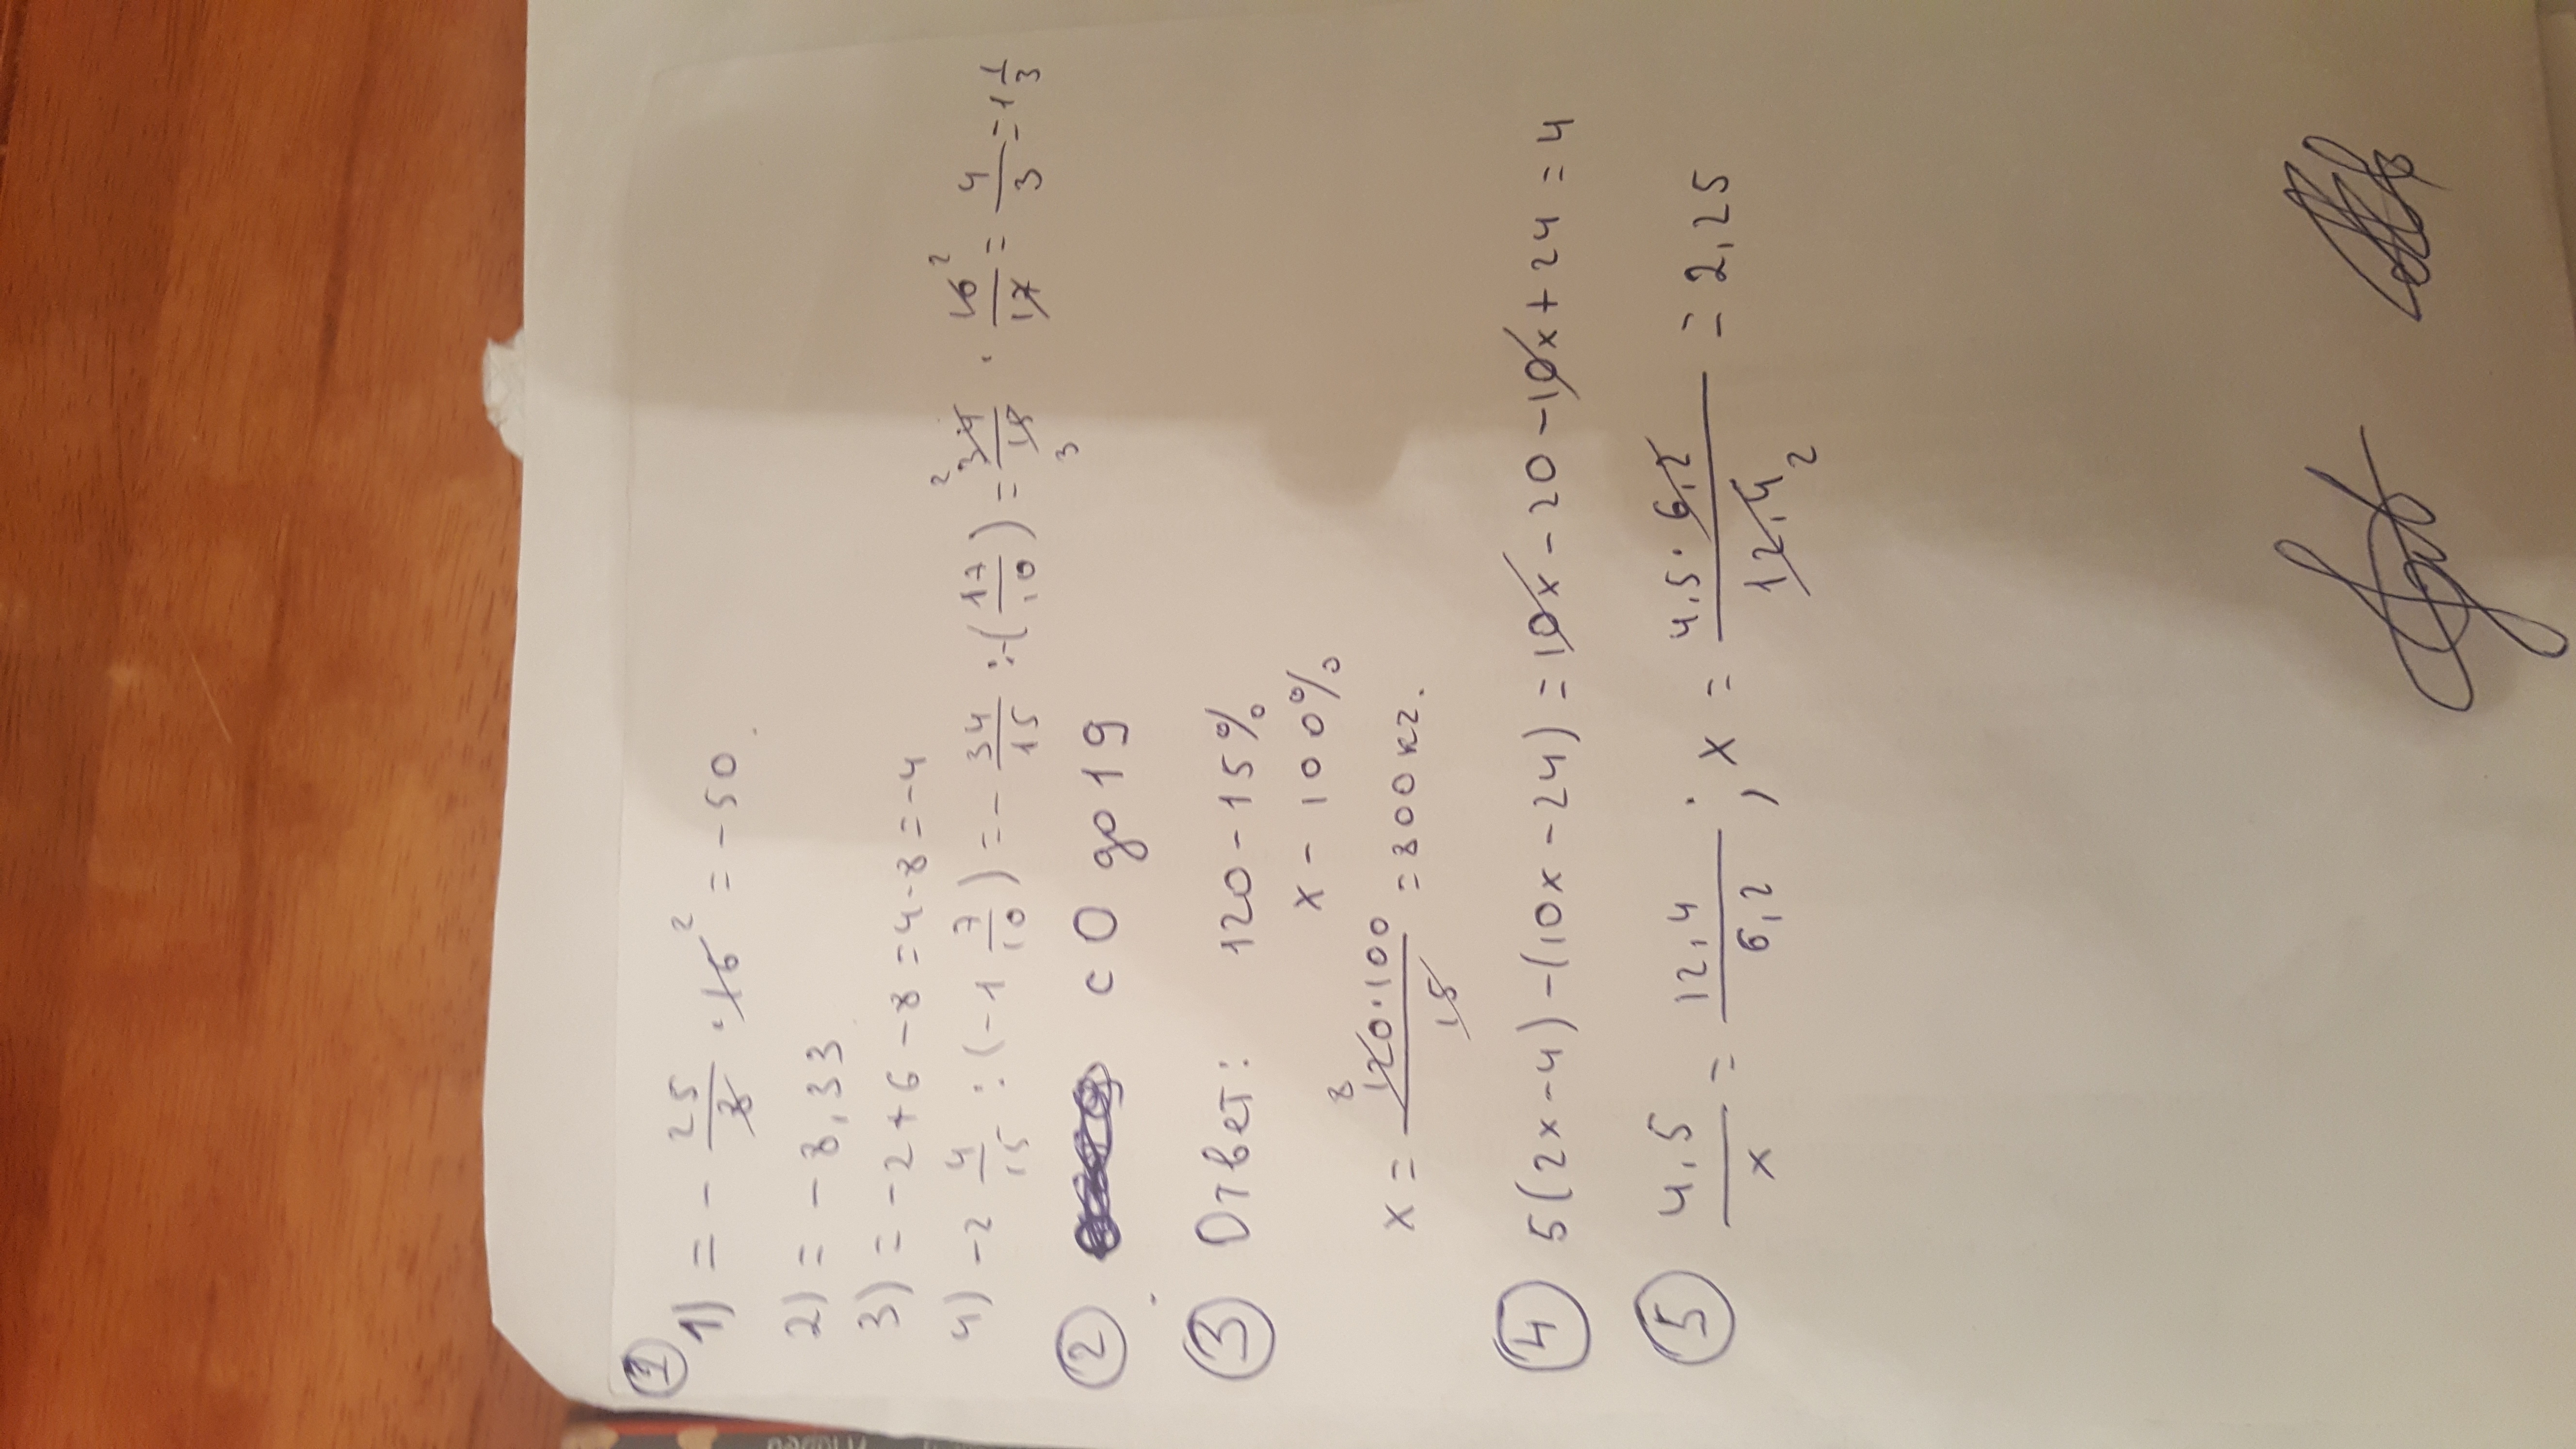 ①
1) = - 25/8 · 16 ² = -50.
2) = -8,33
3) = -2+6-8 = 4-8 = -4
4) -2 4/15 : (-1 7/10) = - 34/15 : -(17/10) = ² 34/15 ₃ · 10 ²/17 = 4/3 = 1 1/3
② с 0 до 19
③ Ответ: 120 - 15%
x - 100%
x = ⁸ 120·100/15 = 800 кг.
④ 5(2x-4)-(10x-24) = 10x-20-10x+24 = 4
⑤ 4,5/x = 12,4/6,2 ; x = 4,5·6,2/12,4 ₂ = 2,25